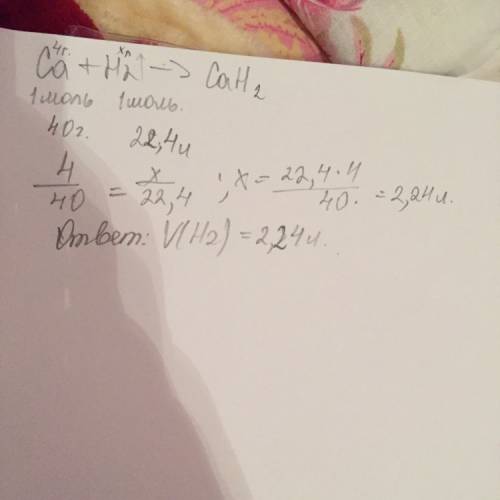 4г. xл
Ca + H2↑ → CaH2
1 моль 1 моль.
40г. 22,4л
4/40 = x/22,4 ; x = 22,4·4/40. = 2,24л.
Ответ: V(H2) = 2,24л.